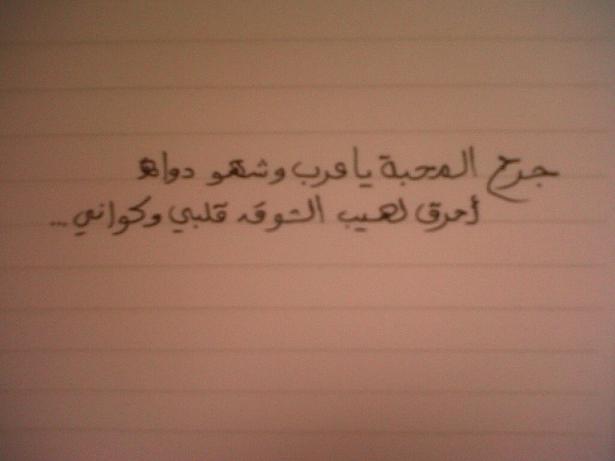 جرح المحبة يا عرب وشهو دواه
أحرق لهيب الشوق قلبي وكواني...